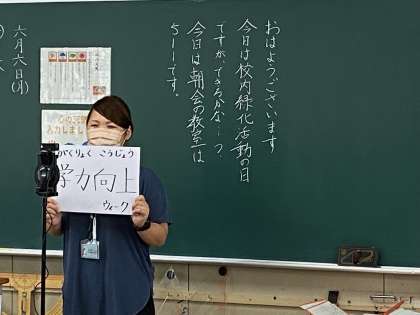 おはようございます
今日は校内緑化活動の日
ですが、できるかな…?
今日は朝会の教室は
5ー1です。
六月六日(月)
心の天気
入力しまし
がくりょく こうじょう
学力向上
ウィーク